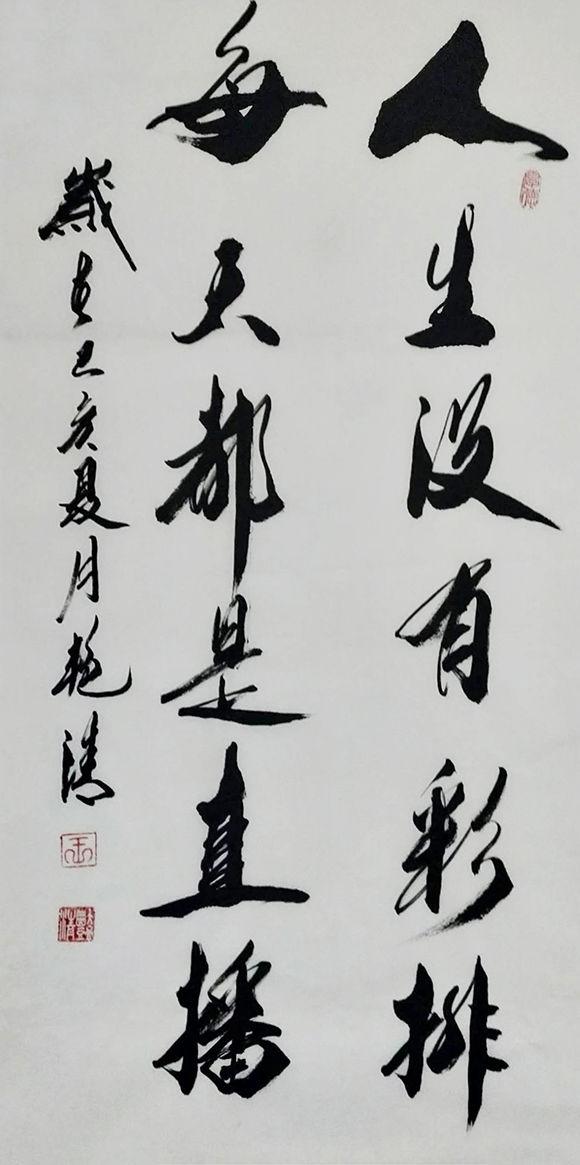 人生没有彩排
每天都是直播
岁在己亥夏月艳清